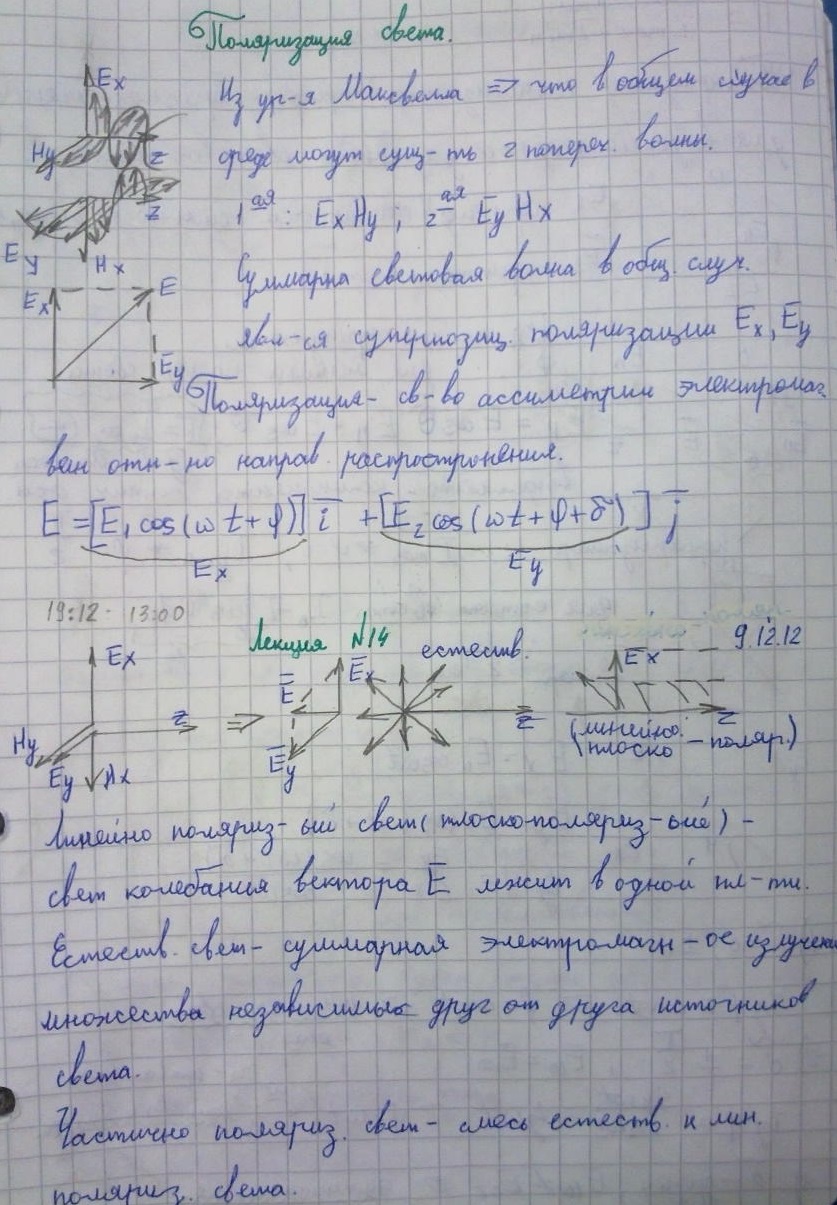 Поляризация света.
Из ур-я Максвелла => что в общем случае в
среде могут сущ-ть 2 попереч. волны.
1ая: Ex Hy ; 2ая Ey Hx
Суммарна световая волна в общ. случ.
явл-ся суперпозиц. поляризации Ex, Ey
Поляризация - св-во ассиметрии электромаг.
волн отн-но направ. распростронения.
E = [E₁ cos(ωt+φ)] i̅ + [E₂ cos(ωt+φ+δ)] j̅
Ex Ey
19:12 - 13:00
Лекция №14 9.12.12
Ex
Hy
z
Ey
Hx
z
Ex
E
Ey
Ex
Hy
z
Ey Hx
=>
E̅x
E̅
E̅y
естеств.
z
Ex
z
(линейно плоско - поляр.)
Линейно поляриз-ый свет (плоскополяриз-ый) -
свет колебания вектора E̅ лежит в одной пл-ти.
Естеств. свет - суммарная электромагн-ое излучен
множества независимых друг от друга источников
света.
Частично поляриз. свет - смесь естеств. и лин.
поляриз. света.